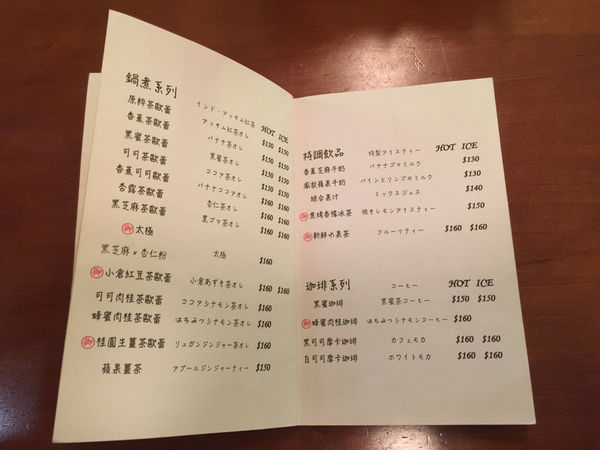 鍋煮系列 インド・アッサム紅茶 HOT ICE
原粹茶歐蕾 アッサム紅茶オレ $150 $150
香蕉茶歐蕾 バナナ茶オレ $150 $150
黑蜜茶歐蕾 黒蜜茶オレ $150 $150
可可茶歐蕾 ココア茶オレ $150 $150
香蕉可可歐蕾 バナナココアオレ $160 $160
杏露茶歐蕾 杏仁茶オレ $160 $160
黑芝麻茶歐蕾 黒ゴマ茶オレ $160 $160
御 太極
黑芝麻×杏仁粉 太極 $160
御 小倉紅豆茶歐蕾 小倉あずき茶オレ $160 $160
可可肉桂茶歐蕾 ココアシナモン茶オレ $160
蜂蜜肉桂茶歐蕾 はちみつシナモン茶オレ $160
御 桂圓生薑茶歐蕾 リュガンジンジャー茶オレ $160
蘋果薑茶 アプールジンジャーティー $150
特調飲品 特製アイスティー HOT ICE
香蕉芝麻牛奶 バナナゴマミルク $130
鳳梨蘋果牛奶 パインとリンゴのミルク $130
綜合果汁 ミックスジュス $140
御 焦烤香檬冰茶 焼きレモンアイスティー $150
御 新鮮水果茶 フルーツティー $160 $160
咖啡系列 コーヒー HOT ICE
黑蜜咖啡 黒蜜茶コーヒー $150 $150
御 蜂蜜肉桂咖啡 はちみつシナモンコーヒー $160
黑可可摩卡咖啡 カフェモカ $160 $160
白可可摩卡咖啡 ホワイトモカ $160 $160